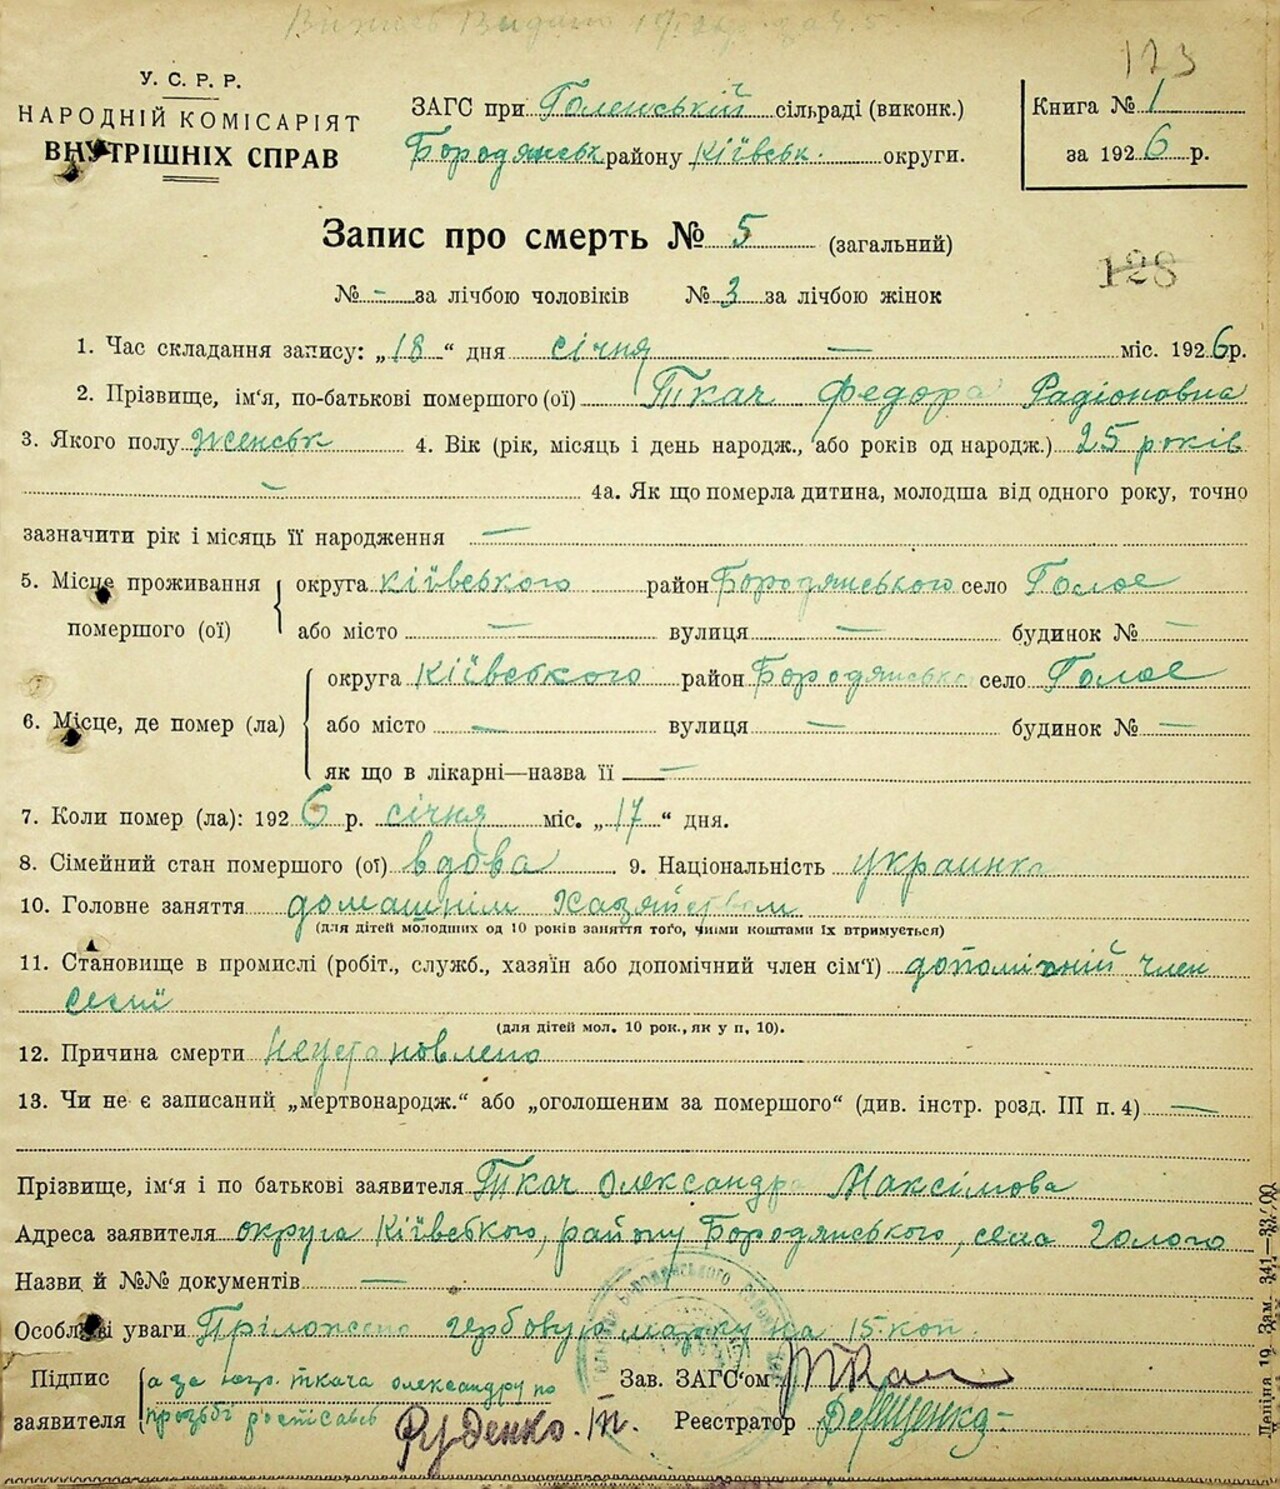 Випись Видано
173
У. С. Р. Р.
НАРОДНІЙ КОМІСАРІЯТ
ВНУТРІШНІХ СПРАВ
ЗАГС при Голенській сільраді (виконк.)
Бородянськ району Кіівськ. округи.
Книга № 1
за 1926 р.
Запис про смерть № 5 (загальний)
128
№ - за лічбою чоловіків № 3 за лічбою жінок
1. Час складання запису: „18“ дня січня — міс. 1926 р.
2. Прізвище, ім‘я, по-батькові помершого (ої) Ткач Федора Радіоновна
3. Якого полу женськ 4. Вік (рік, місяць і день народж., або років од народж.) 25 років
— 4а. Як що померла дитина, молодша від одного року, точно
зазначити рік і місяць її народження —
5. Місце проживання помершого (ої) округа Кіівського район Бородянського село Голое
або місто — вулиця — будинок № —
6. Місце, де помер (ла) округа Кіівського район Бородянського село Голое
або місто — вулиця — будинок № —
як що в лікарні—назва її —
7. Коли помер (ла): 1926 р. січня міс. „17“ дня.
8. Сімейний стан помершого (ої) вдова 9. Національність украинка
10. Головне заняття домашнім хазяйством
(для дітей молодших од 10 років заняття того, чиїми коштами їх втримується)
11. Становище в промислі (робіт., служб., хазяїн або допомічний член сім‘ї) допоміжний член
семії
(для дітей мол. 10 рок., як у п. 10).
12. Причина смерти Неустановлено
13. Чи не є записаний „мертвонародж.“ або „оголошеним за помершого“ (див. інстр. розд. III п. 4) —
Прізвище, ім‘я і по батькові заявителя Ткач Олександра Максімова
Адреса заявителя округа Кіівського, району Бородянського, села Голого
Назви й №№ документів —
Особливі уваги Пріложено гербовую марку на 15 коп.
Підпис заявителя а за негр. Ткача Олександру по
прозьбі росписавсь Руденко. Іп.
Зав. ЗАГС‘ом Ткач
Реєстратор Демщенко
Зам. 341—33700